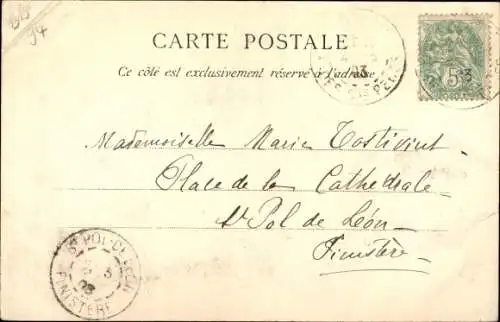 CARTE POSTALE
Ce côté est exclusivement réservé à l'adresse
03
5
Mademoiselle Marie Tostivint
Place de la Cathédrale
St Pol de Léon
Finistère
ST POL-DE-LEON
3
03
FINISTERE